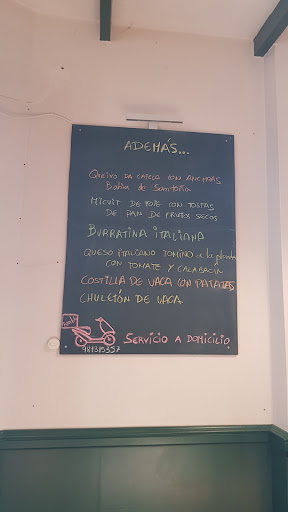 ADEMÁS...
QUEIXO DA CAPELA CON ANCHOAS
Bahía de Santoña
MICUIT DE FOIE CON TOSTAS
DE PAN DE FRUTOS SECOS
BURRATINA ITALIANA
QUESO ITALIANO TOMINO a la plancha
CON TOMATE Y CALABACÍN
COSTILLA DE VACA CON PATATAS
CHULETÓN DE VACA
SERVICIO A DOMICILIO
981315357